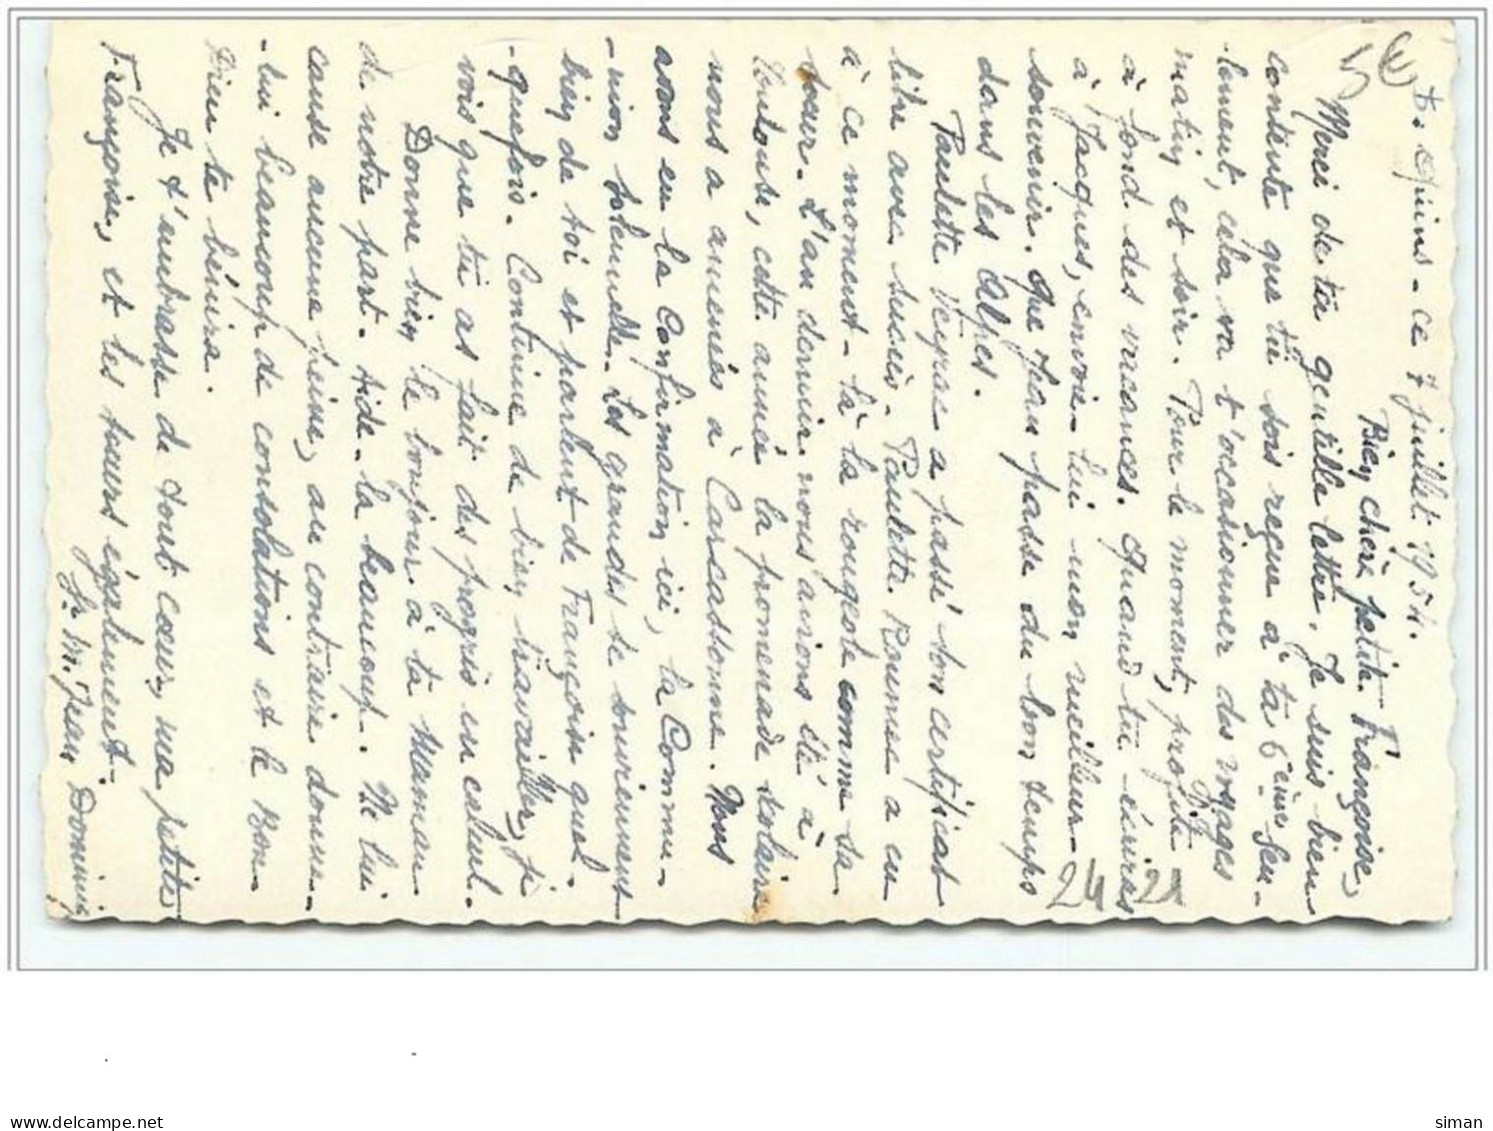 ce 7 juillet 1954.
Bien chère petite Françoise,
Merci de ta gentille lettre. Je suis bien
contente que tu sois reçue à ta 6eme Seu-
lement, cela va t'occasionner des voyages
matin et soir. Pour le moment, profite
à fond des vacances. Quand tu écriras
à Jacques, envoie-lui mon meilleur
souvenir. Que Jean passe du bon temps
dans les Alpes.
Paulette Veyrac a passé son certificat
libre avec succès. Paulette a eu
à ce moment-là la rougeole comme sa
soeur. L'an dernier nous avions été à
Toulouse, cette année la promenade scolaire
nous a amenés à Carcassonne. Nous
avons eu la Confirmation ici, la Commu-
-nion solennelle. Les grandes se souviennent
bien de toi et parlent de Françoise quel-
-quefois. Continue de bien travailler, je
vois que tu as fait des progrès en calcul.
Donne bien le bonjour à ta Maman
de notre part. Aide-la beaucoup. Ne lui
cause aucune peine, au contraire donne-
-lui beaucoup de consolations et le Bon
Dieu te bénira.
Je t'embrasse de tout cœur, ma petite
Françoise, et les sœurs également.
Sr M. Jean Dominiq
5€
24 21
siman
delcampe.net